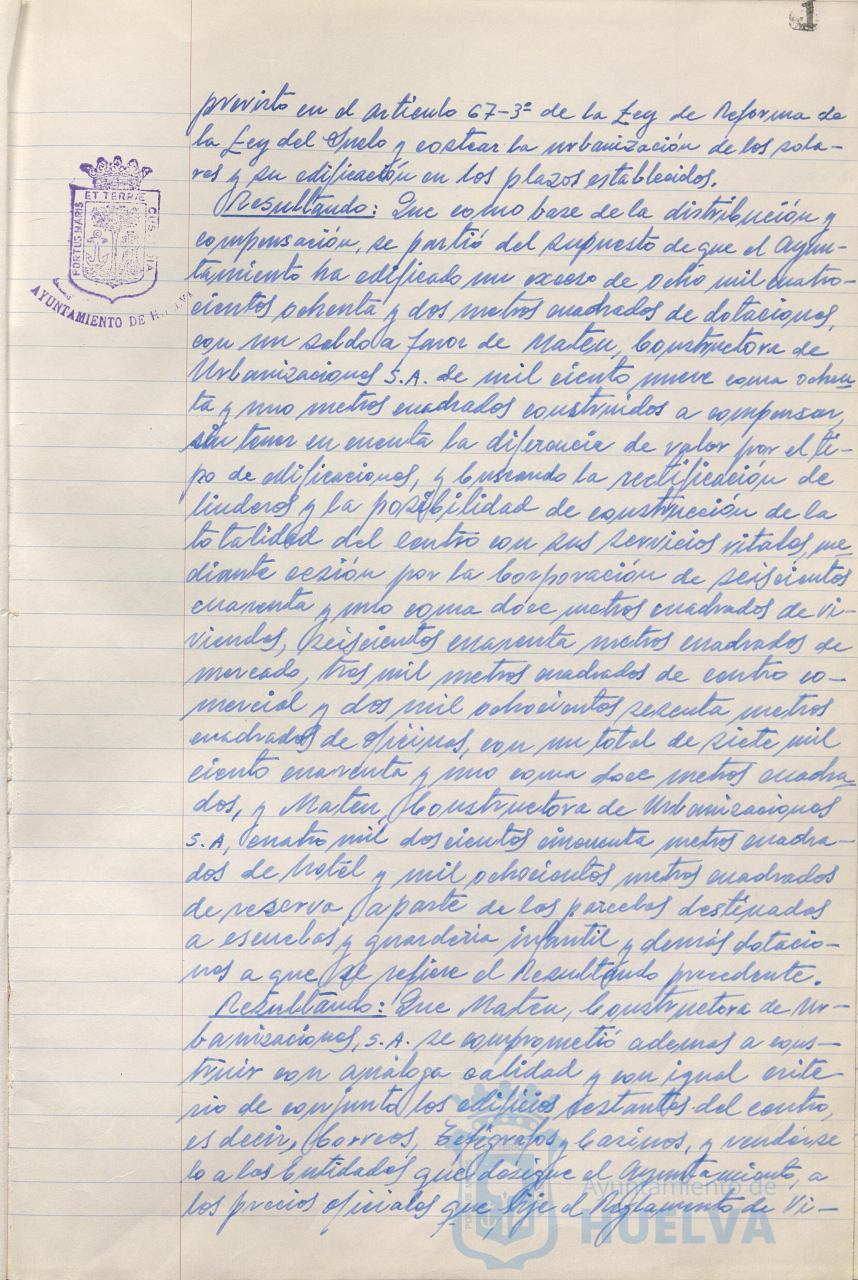 1
previsto en el artículo 67-3º de la Ley de Reforma de
la Ley del Suelo y costear la urbanización de los sola-
res y su edificación en los plazos establecidos.
Resultando: Que como base de la distribución y
compensación, se partió del supuesto de que el Ayun-
tamiento ha edificado un exceso de ocho mil cuatro-
cientos ochenta y dos metros cuadrados de dotaciones,
con un saldo a favor de Mateu, Constructora de
Urbanizaciones S.A. de mil ciento nueve coma ochen-
ta y uno metros cuadrados construidos a compensar,
sin tener en cuenta la diferencia de valor por el ti-
po de edificaciones, y buscando la rectificación de
linderos y la posibilidad de construcción de la
totalidad del centro con sus servicios vitales, me-
diante cesión por la Corporación de seiscientos
cuarenta y uno coma doce metros cuadrados de vi-
viendas, seiscientos cuarenta metros cuadrados de
mercado, tres mil metros cuadrados de centro co-
mercial y dos mil ochocientos sesenta metros
cuadrados de oficinas, con un total de siete mil
ciento cuarenta y uno coma doce metros cuadra-
dos, y Mateu, Constructora de Urbanizaciones
S.A, cuatro mil doscientos cincuenta metros cuadra-
dos de hotel y mil ochocientos metros cuadrados
de reserva, aparte de las parcelas destinadas
a escuelas y guardería infantil y demás dotacio-
nes a que se refiere el Resultando precedente.
Resultando: Que Mateu, Constructora de Ur-
banizaciones, S.A. se comprometió ademas a cons-
truir con análoga calidad y con igual crite-
rio de conjunto los edificios restantes del centro,
es decir, Correos, Telégrafos y Casinos, y vendérse-
lo a las Entidades que designe el Ayuntamiento, a
los precios oficiales que fije el Reglamento de Vi-
PORTUS MARIS ET TERRÆ CUSTODIA
AYUNTAMIENTO DE HUELVA
Ayuntamiento de
HUELVA